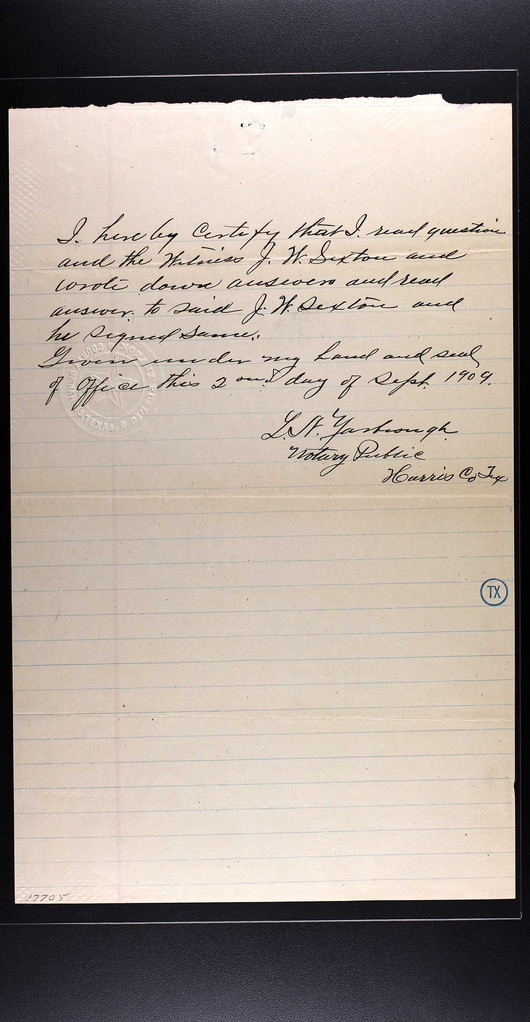 I. hereby Certify that I. read question
and the Witness J. W. Sexton and
wrote down answers and read
answer. to said J. W. Sexton and
he signed same.
Given under my hand and seal
of Office this 2ond day of Sept. 1909.
L. N. Yarbrough
Notary Public
Harris Co Tex
TX
17705